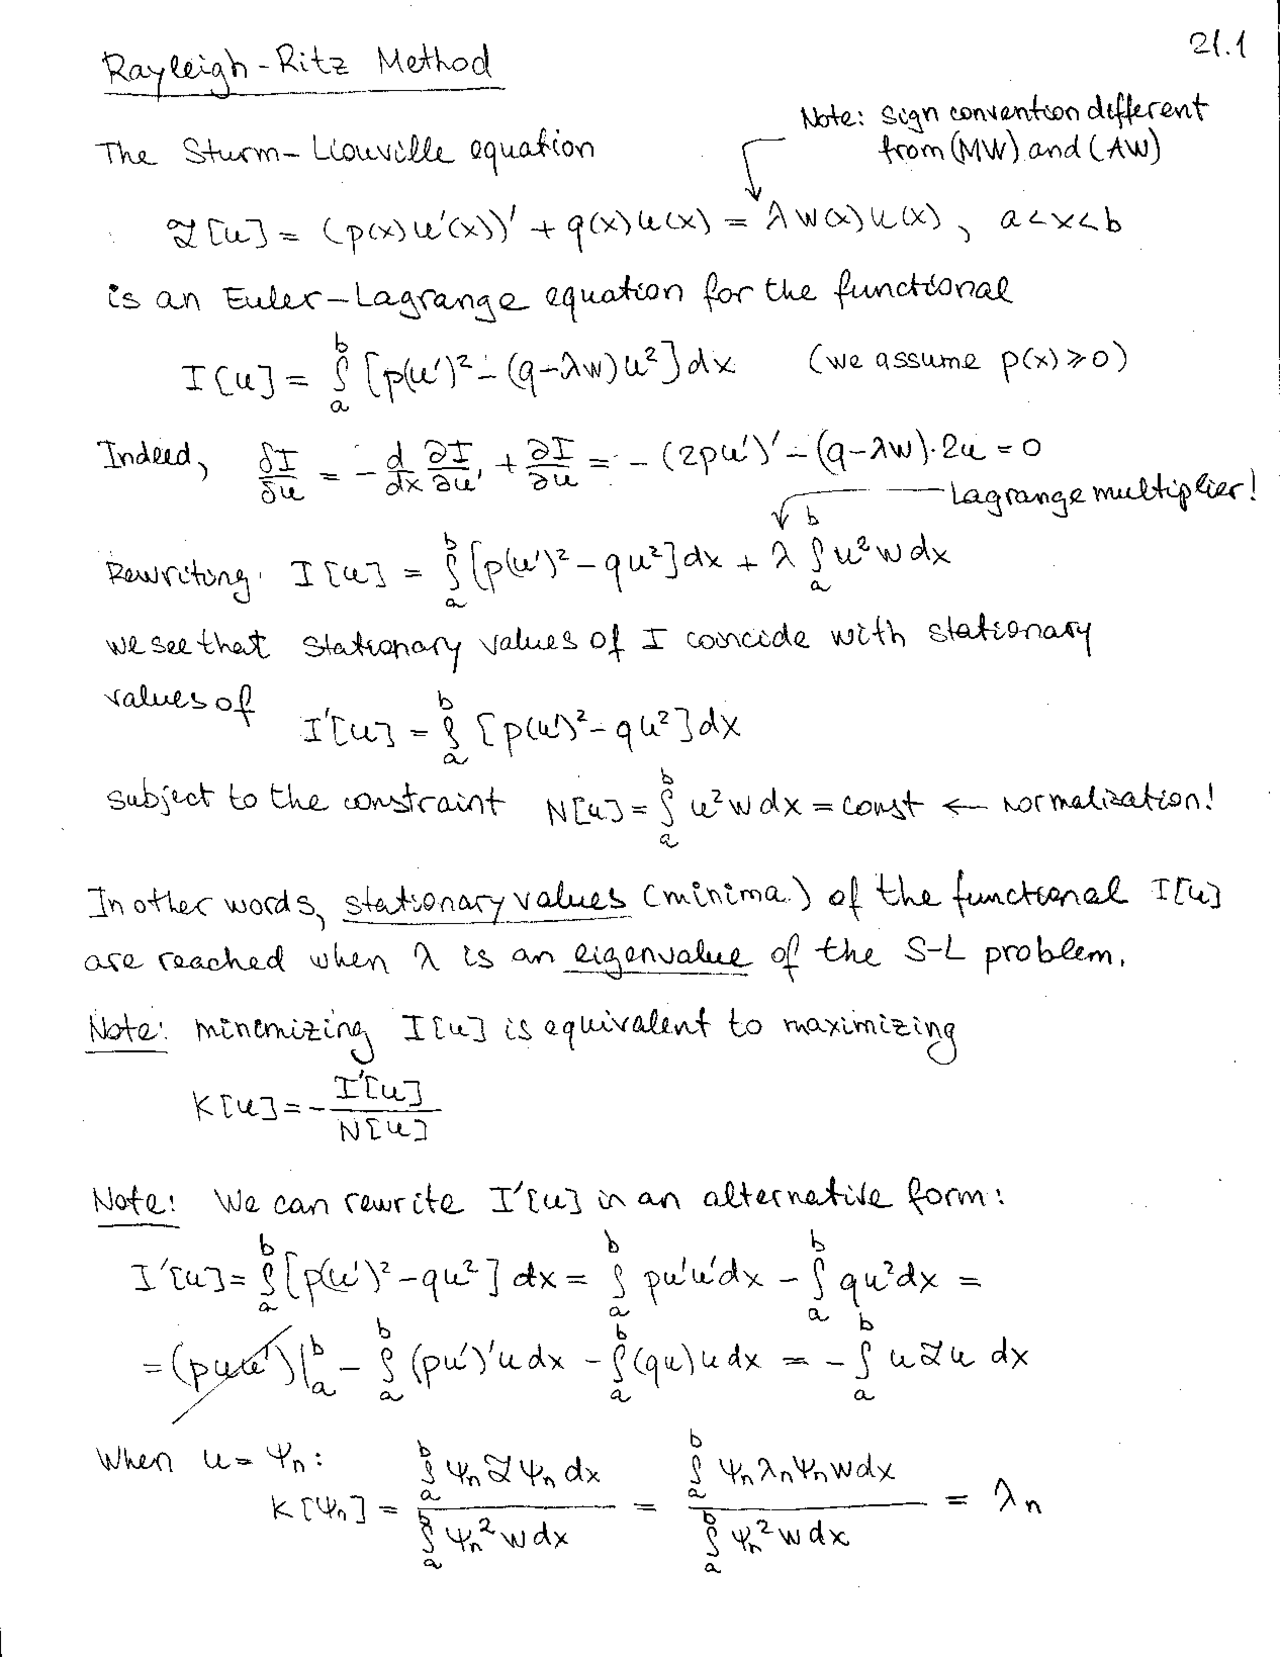 21.1
Rayleigh-Ritz Method
Note: Sign convention different
from (MW) and (AW)
The Sturm-Liouville equation
ℒ[u] = (p(x)u'(x))' + q(x)u(x) = λw(x)u(x), a<x<b
is an Euler-Lagrange equation for the functional
I[u] = ∫_a^b [p(u')² - (q-λw)u²]dx (we assume p(x)≥0)
Indeed, δI/δu = - d/dx ∂I/∂u' + ∂I/∂u = - (2pu')' - (q-λw)·2u = 0
Lagrange multiplier!
Rewriting: I[u] = ∫_a^b [p(u')² - qu²]dx + λ ∫_a^b u²wdx
we see that stationary values of I coincide with stationary
values of
I'[u] = ∫_a^b [p(u')² - qu²]dx
subject to the constraint N[u] = ∫_a^b u²wdx = const ← normalization!
In other words, stationary values (minima) of the functional I[u]
are reached when λ is an eigenvalue of the S-L problem.
Note: minimizing I[u] is equivalent to maximizing
K[u] = - I'[u]/N[u]
Note: We can rewrite I'[u] in an alternative form:
I'[u] = ∫_a^b [p(u')² - qu²] dx = ∫_a^b pu'u'dx - ∫_a^b qu²dx =
= (puu')|_a^b - ∫_a^b (pu')'udx - ∫_a^b (qu)udx = - ∫_a^b uℒu dx
When u = Ψn:
K[Ψn] = ∫_a^b Ψnℒ Ψn dx / ∫_a^b Ψn² wdx = ∫_a^b Ψn λn Ψn wdx / ∫_a^b Ψn² wdx = λn